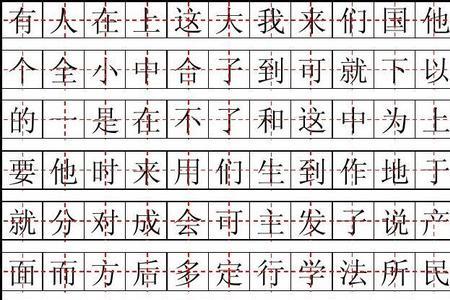 有人在上这大我来们国他
个全小中合子到可就下以
的一是在不了和这中为上
要他时来用们生到作地于
就分对成会可主发了说产
面而方后多定行学法所民